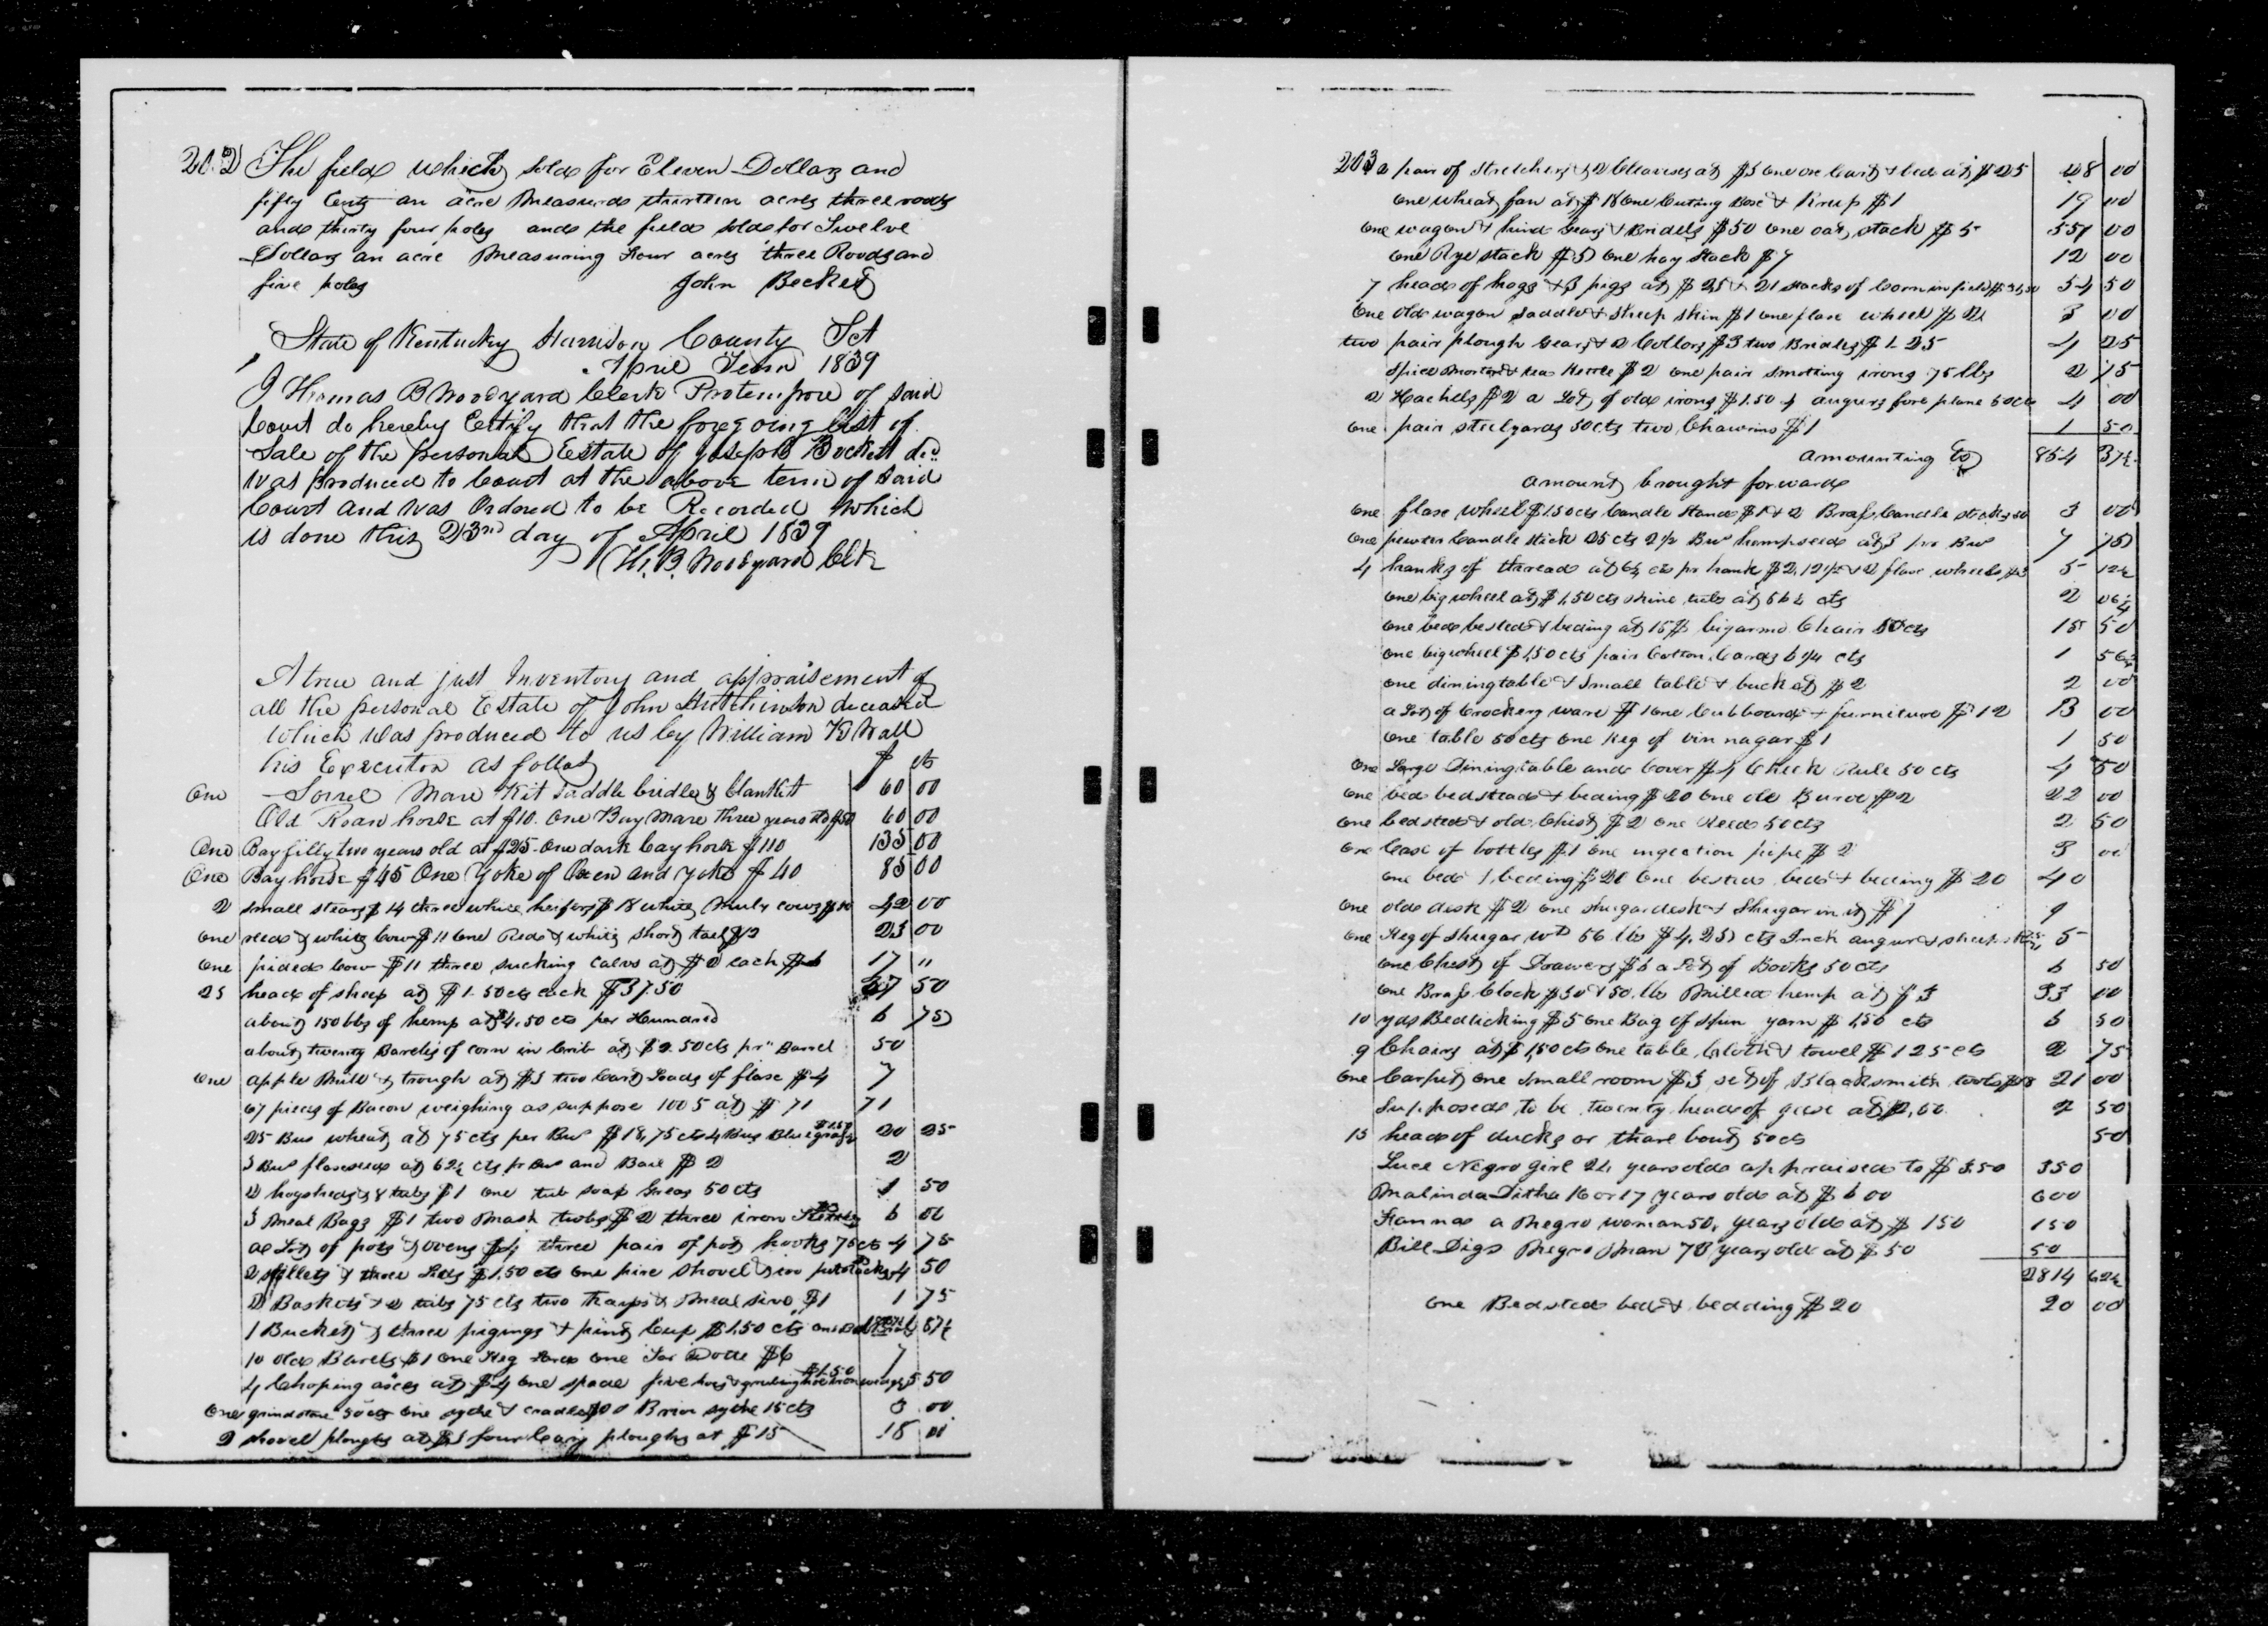 202 The field which sold for Eleven Dollars and
fifty Cents an acre Measured thirteen acres three roods
and thirty four poles and the field sold for Twelve
Dollars an acre Measuring Four acres three Roods and
five poles John Becket
State of Kentucky Harrison County Sct
April Term 1839
I Thomas B Woodyard Clerk Protempore of said
Court do hereby Certify that the foregoing list of
Sale of the personal Estate of Joseph Beckett decd
was produced to Court at the above term of said
Court and was Ordered to be Recorded which
is done this 23rd day of April 1839
H. B. Woodyard Clk
A true and just Inventory and appraisement of
all the personal Estate of John Hutchinson deceased
which was produced to us by William K Wall
his Executor as follos $ cts
One Sorrel Mare Kit saddle bridle & blankett 60 00
Old Roan horse at $10. One Bay Mare three years old $50 60 00
One Bay filly two years old at $25. One dark bay horse $110 135 00
One Bay horse $45 One Yoke of Oxen and yoke $40 85 00
2 small stears $14 three white heifers $18 white Muly cow $10 42 00
One reed & white Cow $11 One Red & white short tail $12 23 00
One pided Cow $11 three sucking calvs at $2 each $6 17 "
25 head of sheep at $1.50cts each $37.50 37 50
about 150 lbs of hemp at $4.50 cts per Hundred 6 75
about twenty Barels of corn in Crib at $2.50cts pr Barrel 50
One apple Mill & trough at $3 two Cart Loads of flax $4 7
67 pieces of Bacon weighing as suppose 1005 at $71 71
25 Bus wheat at 75 cts per Bus $18,75 cts 4 Bus Blue grass $1.50 20 25
3 Bus flaxseed at 62½ cts pr Bus and Box $2 2
2 hogsheads & tubs $1 one tub soap Greas 50 cts 1 50
3 Meal Bags $1 two Mash tubs $2 three iron Kettles $3 6 00
a Lot of pots & ovens $4 three pair of pot hooks 75cts 4 75
2 skillets & three Lids $1,50 cts one fire shovel 4 50
2 Baskets & 2 tubs 75 cts two trays & Meal sive $1 1 75
1 Bucket & three pigings & pint Cup $1,50 cts
10 old Barels $1 One Keg Lard one Jar Dotte $6 7
4 Choping axes at $4 one spade five hoes & grubing hoe $1.50 5 50
One grindstone 50cts one sythe & cradle Brier sythe 15cts 3 00
2 shovel ploughs at $3 four Cary ploughs at $15 18 00
203 2 pair of Stretchers & 2 Cleavises at $3 one ox Cart & bed at $25 28 00
One wheat fan at $18 One Cuting Box & Knife $1 19 00
One wagon & hind Gears & Bridels $50 one oat stack $5 55 00
One Rye stack $5 One hay Stack $7 12 00
7 head of hogs & 3 pigs at $ 21 stacks of Corn in field 54 50
One old wagon saddle & sheep skin $1 one flax wheel $2 3 00
two pair plough Gears & 2 Collars $3 two Bridles $1.25 4 25
Spice Mortar & tea Kettle $2 one pair smothing irons 75 2 75
2 Hackels $2 a Lot of old irons $1.50 4 augurs fore plane 50cts 4 00
One pair steelyards 50cts two Chawins $1 1 50
amounting to 854 37½
amount brought forward
One flax wheel $1.50cts Candle Stand $1 & 2 Brass Candle sticks 50 3 00
One pewter Candle stick 25 cts 2½ Bus hempseed at 3 pr Bus 7 75
4 hanks of thread at 6¼ cts pr hank $2,12½ & 2 flax wheels $3 5 12½
One big wheel at $1,50 cts 2 06¼
One bed bested & beding at 15$ big arm Chair 50cts 15 50
One big wheel $1,50cts pair Cotton Cards 6¼ cts 1 56¼
One dining table & Small table & buck at $2 2 00
a Lot of Crockery ware $1 one Cubboard & furniture $12 13 00
One table 50cts one Keg of vinnagar $1 1 50
One Large Dining table and Cover $4 Check Rule 50 cts 4 50
One bed bedstead & beding $20 One old Buroe $2 22 00
One bedsted & old Chist $2 One Reed 50cts 2 50
One Case of bottles $1 one ingection pipe $2 3 00
One bed & beding $20 One bested bed & beding $20 40
One old desk $2 one shugar desk & Shugar in it $7 9
One Keg of Shugar wt 56 lbs $4.25 cts Inch augur & 5
One Chest of Drawers $6 a Lot of Books 50cts 6 50
One Brass Clock $30 & 50 lbs Milled hemp at $3 33 00
10 yds Bedticking $5 One Bag of Spun yarn $1,50 cts 6 50
9 Chairs at $1,50 cts One table Cloth & towel $1 25cts 2 75
One Carpet One Small room $3 set of Blacksmith tools $18 21 00
Suposed to be twenty head of geese at $2,50. 2 50
15 head of ducks or thare bout 50cts 50
Luce Negro Girl 24 years old appraised to $350 350
Malinda Ditha 16 or 17 years old at $600 600
Hannah a Negro woman 50 years old at $150 150
Bill Digs Negro Man 78 years old at $50 50
2814 62½
One Bedsted bed & bedding $20 20 00